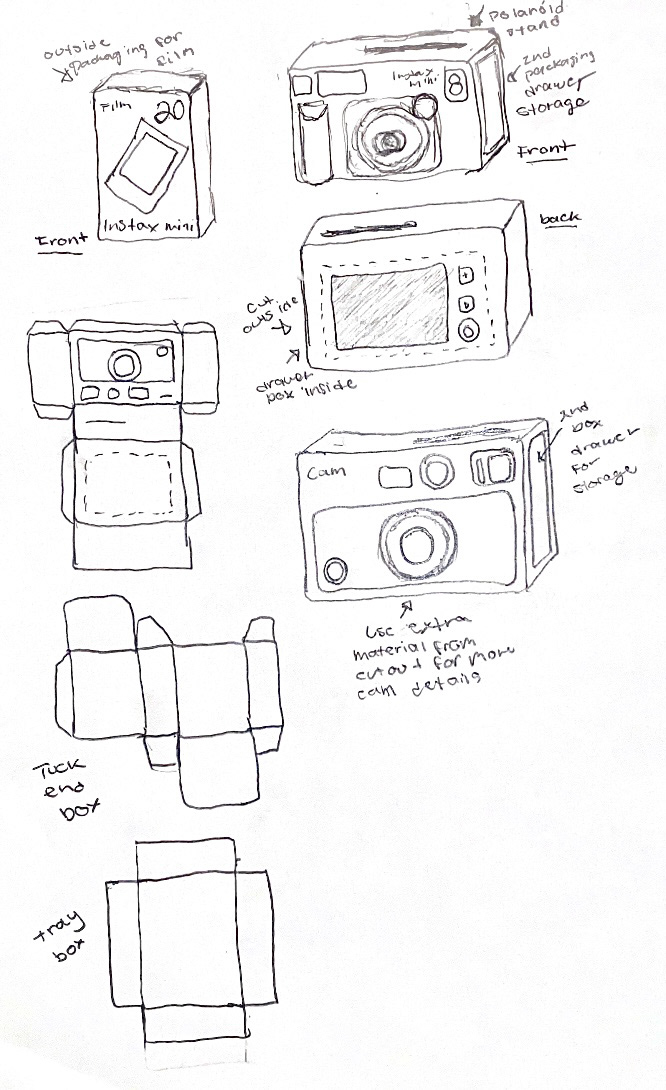 outside
packaging for
film
Film
20
Instax mini
Front
Polanoid
stand
2nd
packaging
drawer
storage
Instax
mini
8
Front
back
cut
outside
drawer
box inside
Cam
2nd
box
drawer
for
storage
Use extra
material from
cutout for more
cam details
Tuck
end
box
tray
box